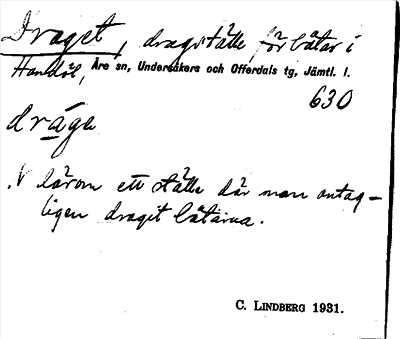 Draget, dragställe för båtar i
Handöl, Åre sn, Undersåkers och Offerdals tg, Jämtl. l.
630
drága
V lärom ett ställe där man antag-
ligen dragit båtarna.
C. LINDBERG 1931.